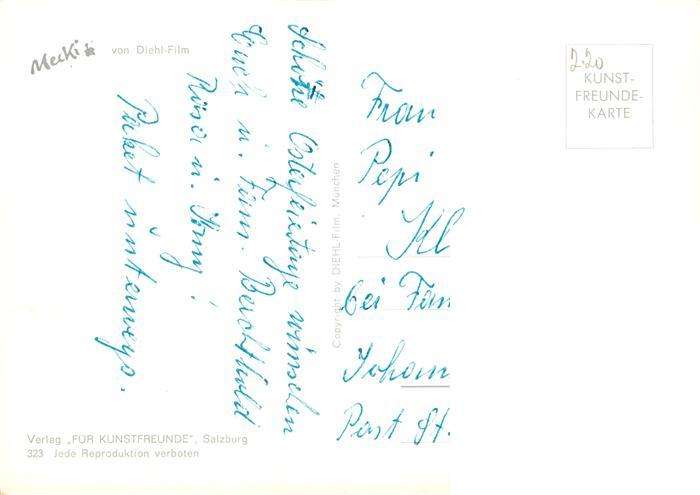 Mecki
von Diehl-Film
Schöne Osterfeiertage wünschen
Euch u. Fam. Berchthold
Rosa u. Anny!
Paket unterwegs.
Copyright by DIEHL-Film, München
2.20
KUNST-
FREUNDE-
KARTE
Frau
Pepi
Kl
bei Fam
Johann
Post St.
Verlag „FÜR KUNSTFREUNDE", Salzburg
323 Jede Reproduktion verboten